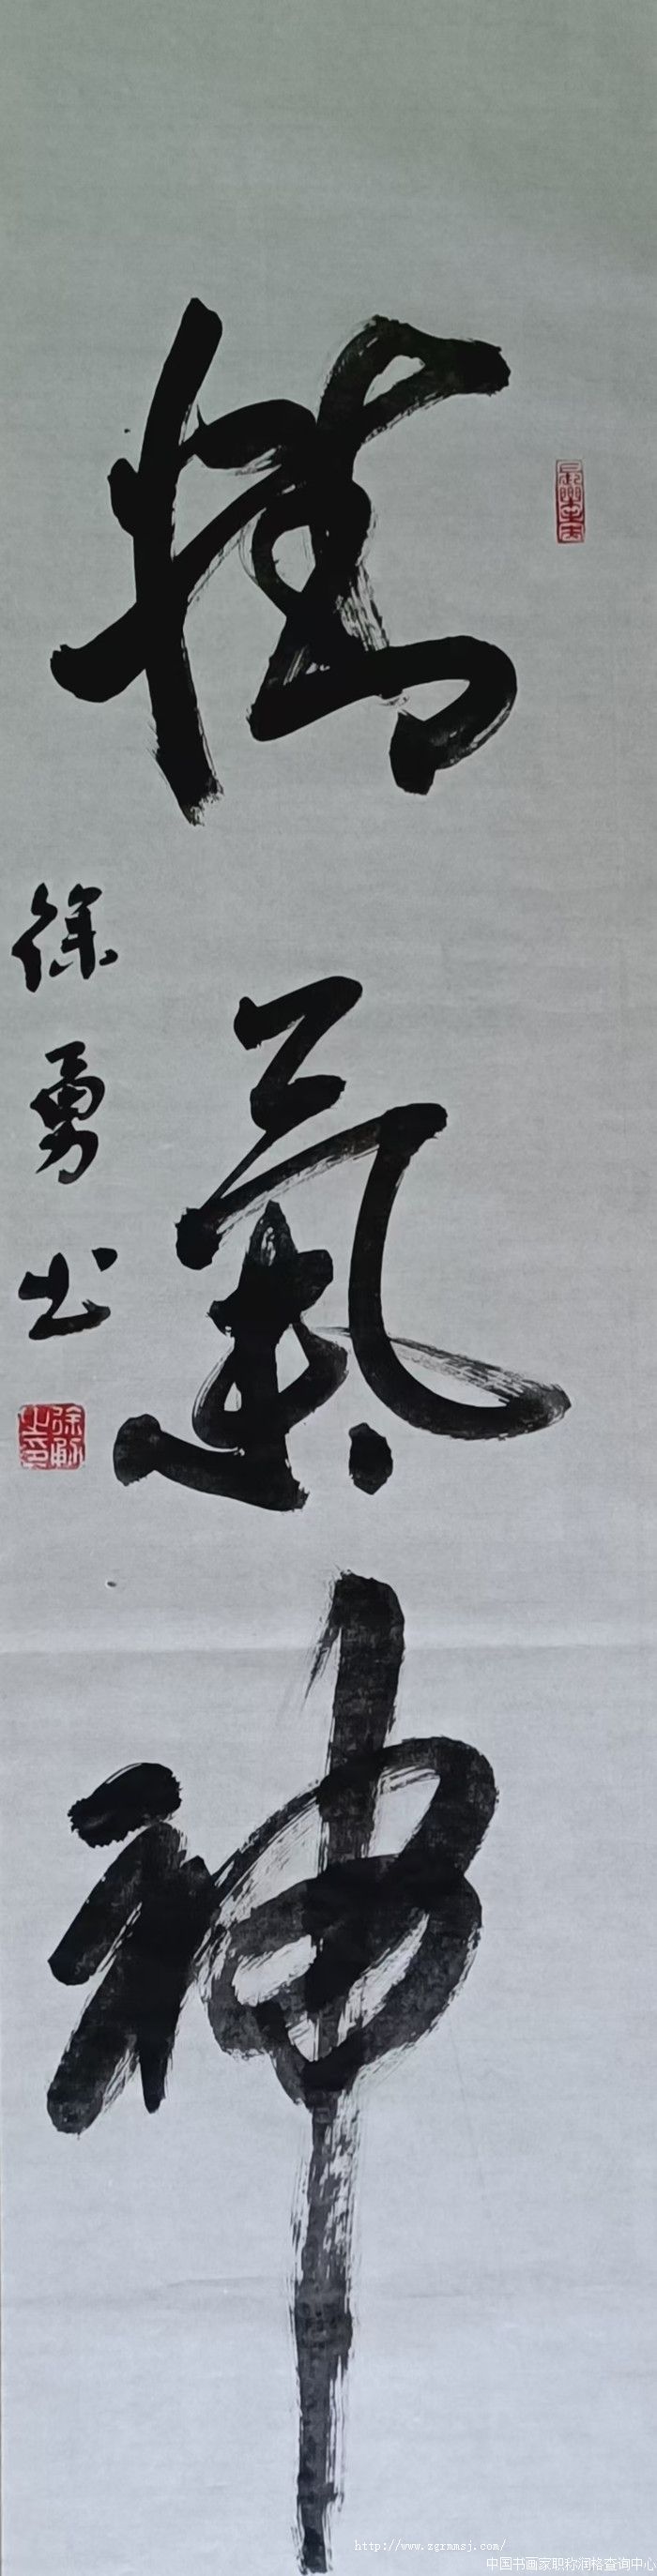 精氣神
徐勇书
徐勇之印
http://www.zgrmmsj.com/
中国书画家职称润格查询中心